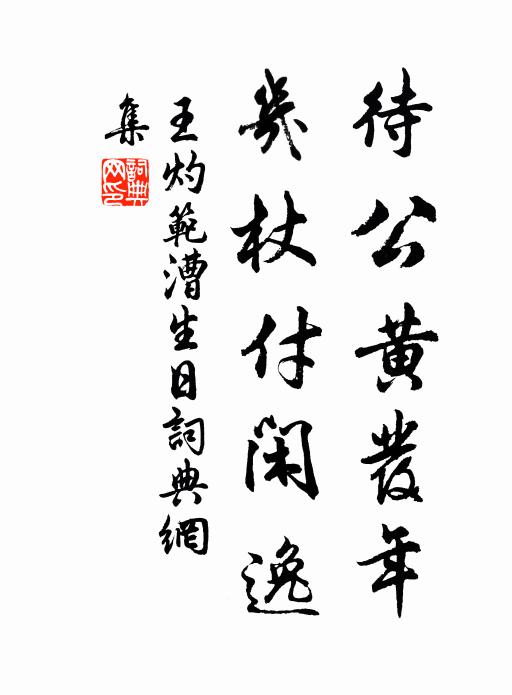 待公黄發年
幾杖付閑逸
王灼範漕生日詞典網
集
詞典網印